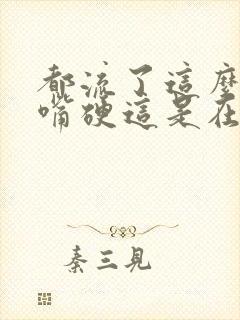 都流了這麼
嘴硬這是在
秦三見